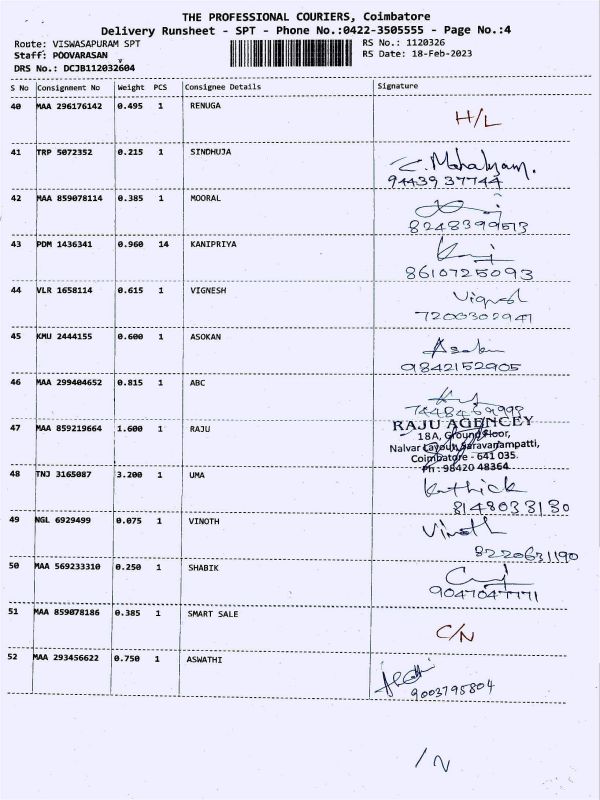 THE PROFESSIONAL COURIERS, Coimbatore
Delivery Runsheet - SPT - Phone No.:0422-3505555 - Page No.:4
Route: VISWASAPURAM SPT
RS No.: 1120326
Staff: POOVARASAN
RS Date: 18-Feb-2023
DRS No.: DCJB112032604
S No Consignment No Weight PCS Consignee Details Signature
40 MAA 296176142 0.495 1 RENUGA
H/L
41 TRP 5072352 0.215 1 SINDHUJA
94439 37744
42 MAA 859078114 0.385 1 MOORAL
8248399513
43 PDM 1436341 0.960 14 KANIPRIYA
8610725093
44 VLR 1658114 0.615 1 VIGNESH
Vignesh
7200302941
45 KMU 2444155 0.600 1 ASOKAN
Asokan
9842152905
46 MAA 299404652 0.815 1 ABC
47 MAA 859219664 1.600 1 RAJU
RAJU AGENCEY
18A, Ground Floor,
Nalvar Layout, Saravanampatti,
Coimbatore - 641 035.
Ph : 98420 48364
48 TNJ 3165087 3.200 1 UMA
Karthick
8148033130
49 NGL 6929499 0.075 1 VINOTH
Vinoth
8220631190
50 MAA 569233310 0.250 1 SHABIK
9047047771
51 MAA 859078186 0.385 1 SMART SALE
C/N
52 MAA 293456622 0.750 1 ASWATHI
9003795804
/N